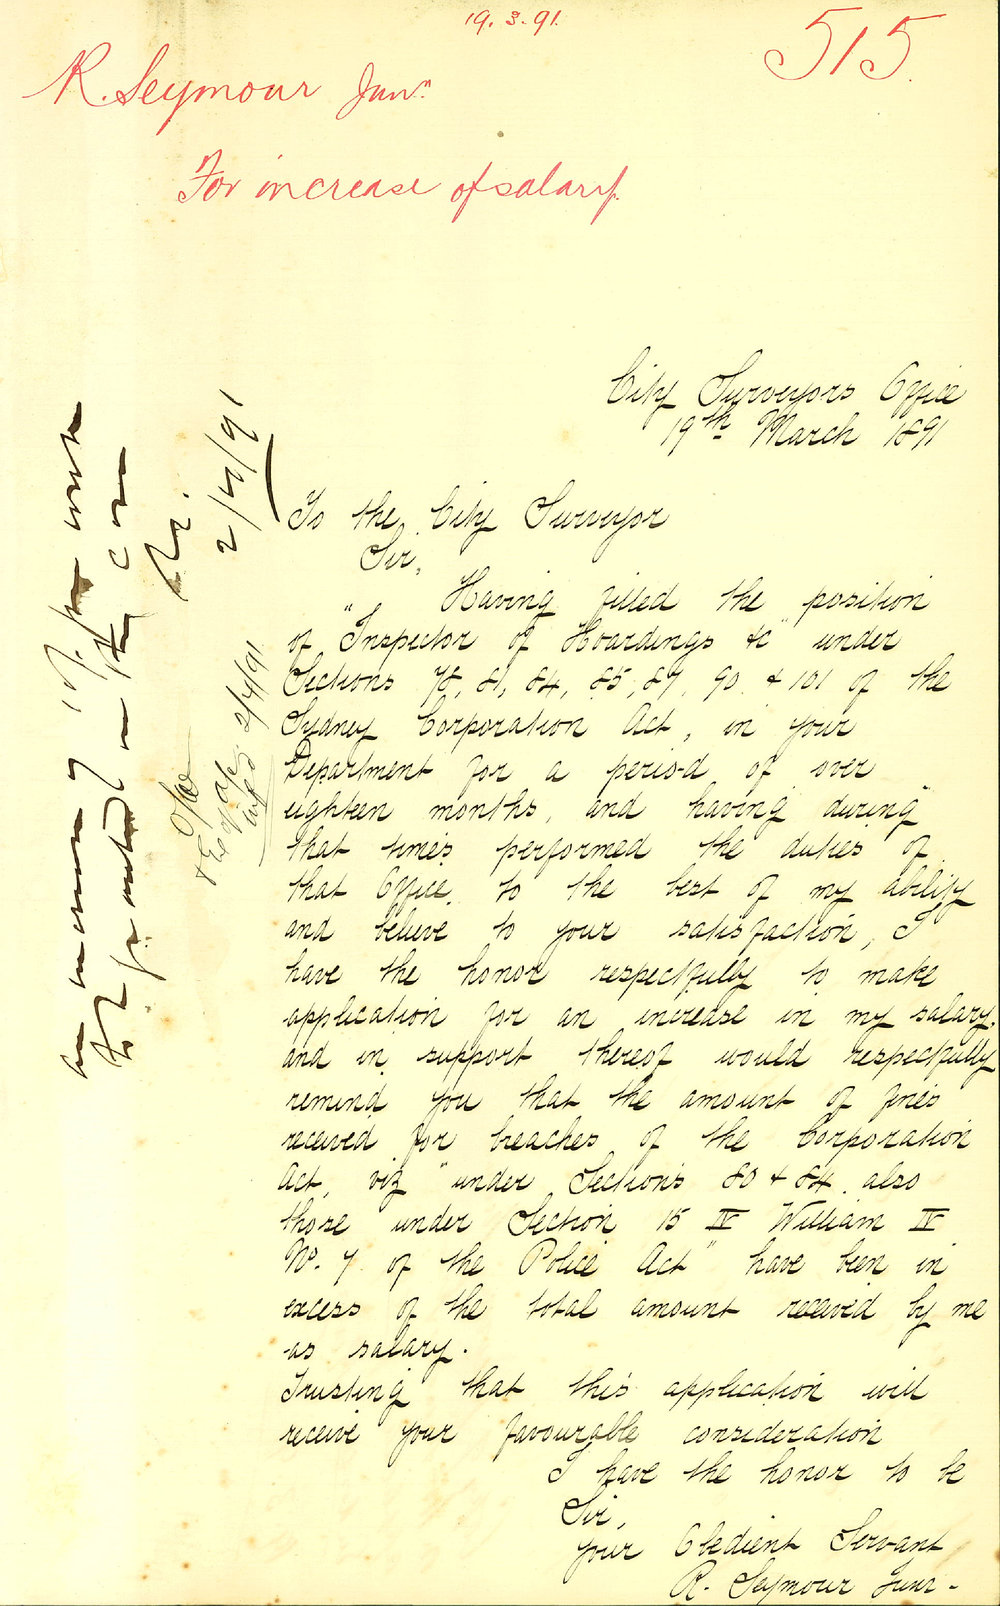 19.3.91.
515.
R. Seymour Junr.
For increase of salary.
City Surveyors Office
19th March 1891
To the City Surveyor
Sir,
Having filled the position
of "Inspector of Hoardings &c" under
Sections 78, 81, 84, 85, 87, 90 & 101 of the
Sydney Corporation Act, in your
Department for a period of over
eighteen months, and having during
that times performed the duties of
that Office, to the best of my ability
and believe to your satisfaction, I
have the honor respectfully to make
application for an increase in my salary,
and in support thereof would respectfully
remind you that the amount of fines
received for breaches of the Corporation
Act, viz "under Sections 80 & 84 also
those under Section 15 IV William IV
No. 7 of the Police Act" have been in
excess of the total amount received by me
as salary.
Trusting that this application will
receive your favourable consideration
I have the honor to be
Sir,
your Obedient Servant
R. Seymour Junr-
2/4/91
2/4/91